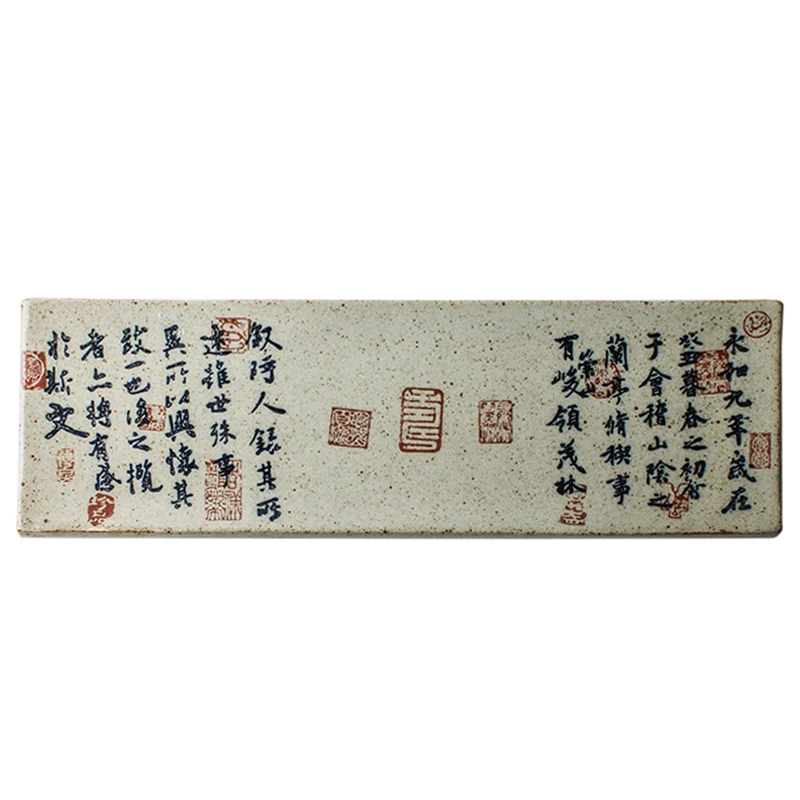 永和九年歲在
癸丑暮春之初會
于會稽山陰之
蘭亭脩稧事
崇山
有峻領茂林
敘時人錄其所
述雖世殊事
異所以興懷其
致一也後之攬
者亦將有感
於斯文